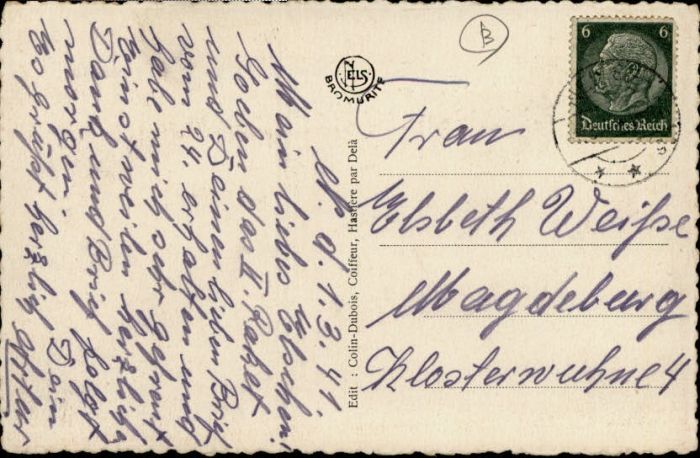 N. d. 1.3.41.
Mein liebes Elschen!
Soeben das II. Paket
und Deinen lieben Brief
vom 24. erhalten und
habe mich sehr gefreut
Einstweilen herzlich
Dank und Brief folgt
morgen.
Es grüßt herzlich Dein
Artur
Edit : Colin-Dubois, Coiffeur, Hastière par Delà
NELS
BROMURITE
B
6 6
Deutsches Reich
Frau
Elsbeth Weiße
Magdeburg
Klosterwuhne 4